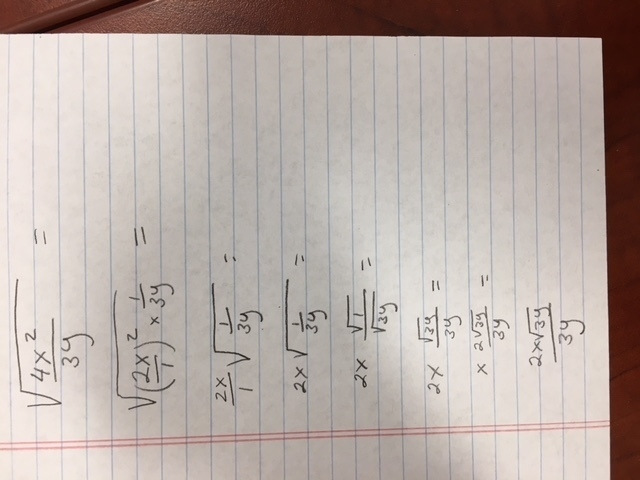 √(4x²/3y) =
√((2x/1)² × 1/3y) =
2x/1 √(1/3y) =
2x √(1/3y) =
2x √1/√3y =
2x √3y/3y =
x 2√3y/3y =
2x√3y/3y